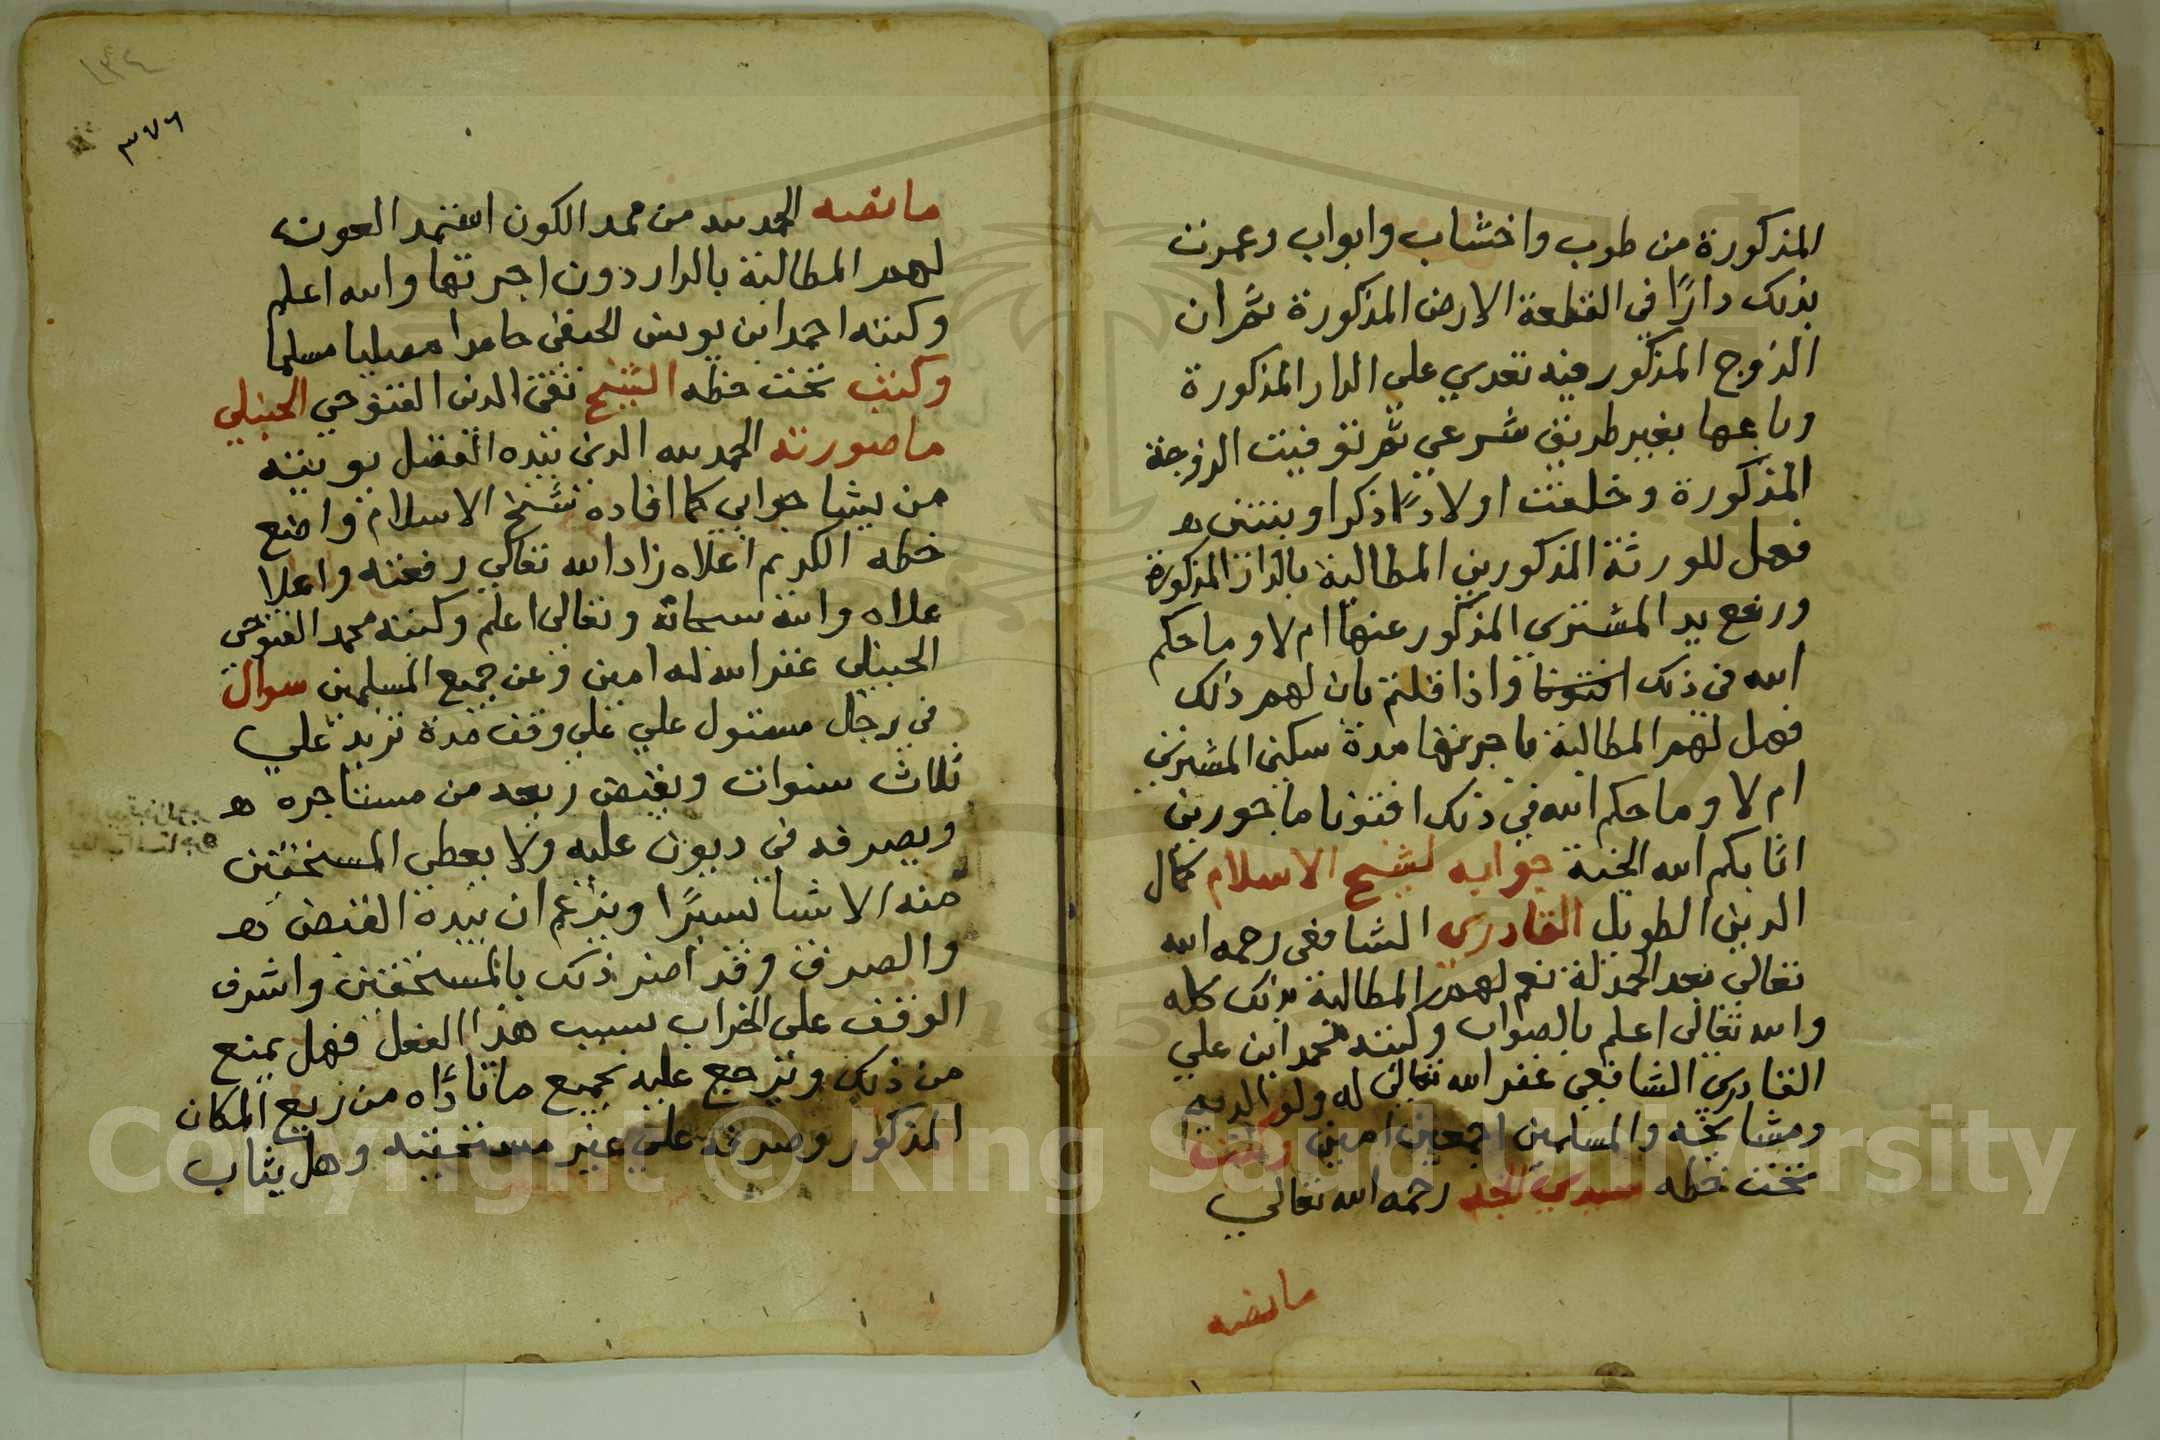 المذكورة من طوب واخشاب وابواب وعمرت
بذلك دارًا في القطعة الارض المذكورة ثم ان
الزوج المذكور فيه تعدي على الدار المذكورة
وباعها بغير طريق شرعي ثم توفيت الزوجة
المذكورة وخلفت اولادًا ذكرا وبنتين ه
فهل للورثة المذكورين المطالبة بالدار المذكورة
ورفع يد المشتري المذكور عنها ام لا وما حكم
الله في ذلك افتونا واذا قلتم بان لهم ذلك
فهل لهم المطالبة باجرتها مدة سكنى المشترين
ام لا وما حكم الله في ذلك افتونا ماجورين
اثابكم الله الجنة جوابه لشيخ الاسلام كمال
الدين الطويل القادرى الشافعى رحمه الله
تعالى بعد الحمدلة نعم لهم المطالبة بذلك كله
والله تعالى اعلم بالصواب وكتبه محمد ابن علي
القادرى الشافعي غفر الله تعالى له ولوالديه
ومشايخه والمسلمين اجمعين امين وكتب
تحت خطه سيدي الجد رحمه الله تعالي
مانصه
١٣٤
٣٧٦
مانصه الحمد لله من ممد الكون استمد العون
لهم المطالبة بالدار دون اجرتها والله اعلم
وكتبه احمد ابن يونس الحنفى حامدا مصليا مسلما
وكتب تحت خطه الشيخ تقى الدين الفتوحي الحنبلي
ما صورته الحمد لله الذي بيده الفضل يوتيه
من يشا جوابي كما افاده شيخ الاسلام واضع
خطه الكريم اعلاه زاد الله تعالي رفعته واعلا
علاه والله سبحانه وتعالى اعلم وكتبه محمد الفتوحى
الحنبلى غفر الله له امين وعن جميع المسلمين سوال
في رجل مستول علي علي وقف مدة تزيد علي
ثلاث سنوات ويقبض ريعه من مستاجره ه
ويصرفه في ديون عليه ولا يعطى المستحقين
منه الا شيا يسيرًا ويزعم ان بيده القبض ه
والصرف وقد اضر ذلك بالمستحقين واشرف
الوقف على الخراب بسبب هذا الفعل فهل يمنع
من ذلك ويرجع عليه بجميع ما تأدَّاه من ريع المكان
المذكور وصرفه علي غير مستحقيه وهل يثاب
Copyright © King Saud University